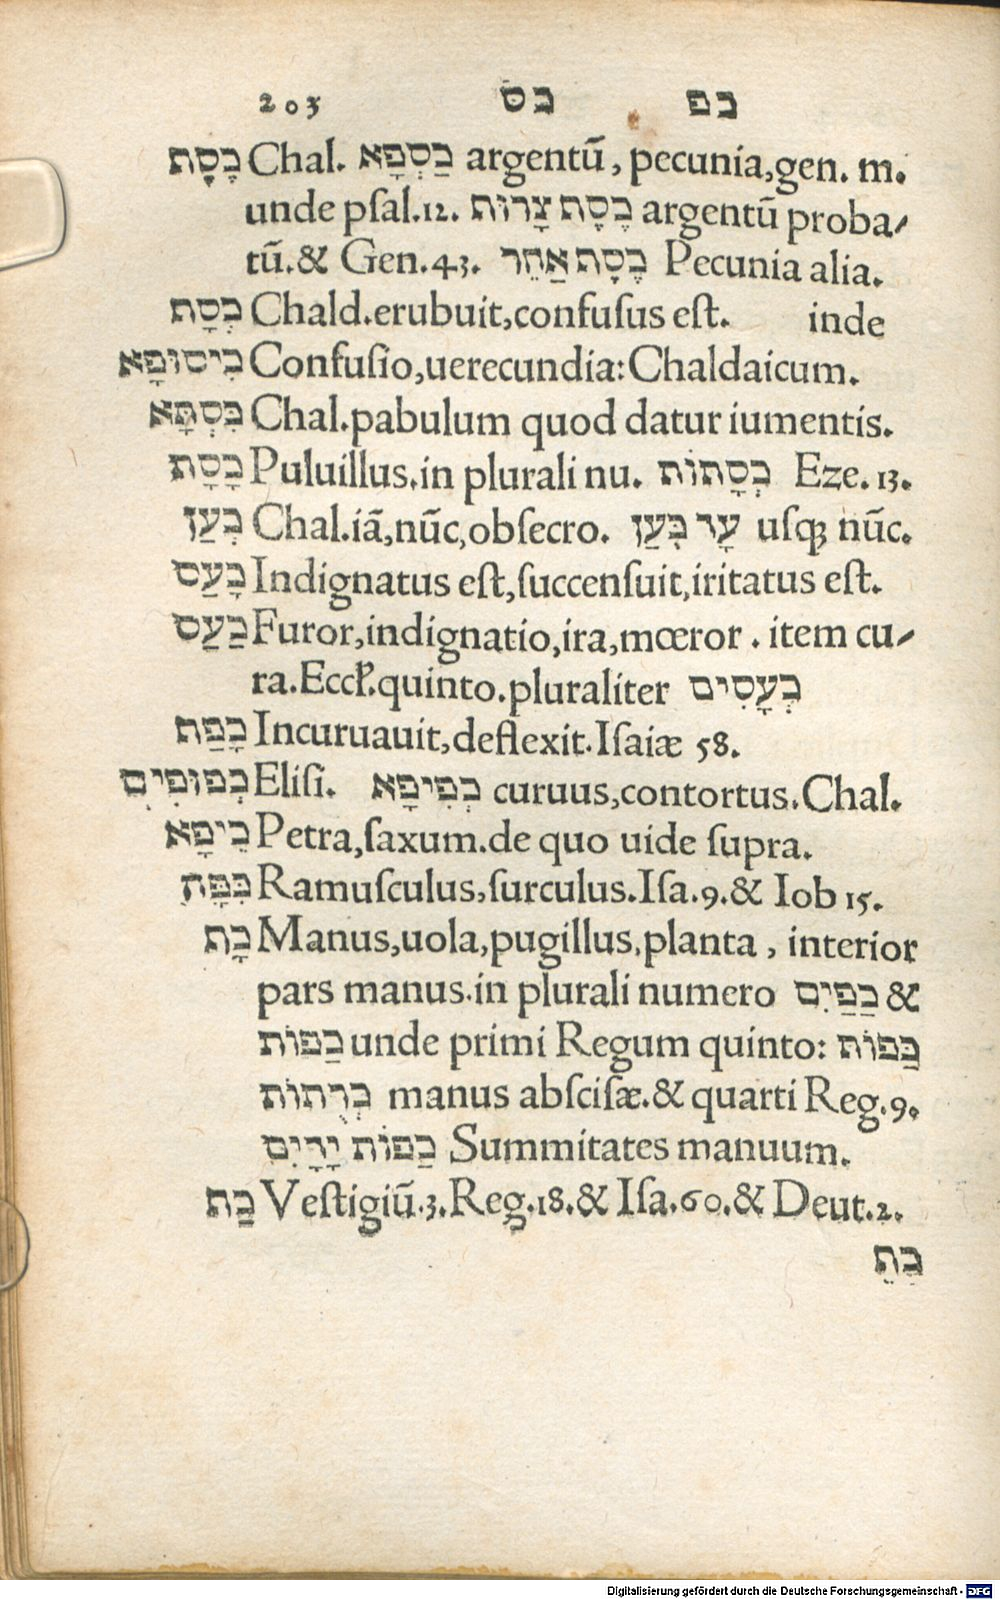 203 כס כפ
כֶסֶף Chal. כַסְפָא argentũ, pecunia, gen. m.
unde pſal. 12. כֶסֶף צָרוּף argentũ proba⸗
tũ. & Gen. 43. כֶסֶף אַחֵר Pecunia alia.
כְסַף Chald. erubuit, confuſus eſt. inde
כִיסוּפָא Confuſio, uerecundia: Chaldaicum.
כִסְפָּא Chal. pabulum quod datur iumentis.
כָסָת Puluillus. in plurali nu. כְסָתוֹת Eze. 13.
כְעַן Chal. iã, nũc, obſecro. עָד כְעַן uſqꝫ nũc.
כָעַס Indignatus eſt, ſuccenſuit, iritatus eſt.
כַעַס Furor, indignatio, ira, mœror. item cu⸗
ra. Eccl. quinto. pluraliter כְעָסִים
כָפַף Incuruauit, deflexit. Iſaiæ 58.
כְפוּפִים Eliſi. כְפִיפָא curuus, contortus. Chal.
כֵיפָא Petra, ſaxum. de quo uide ſupra.
כִפָּה Ramuſculus, ſurculus. Iſa. 9. & Iob 15.
כָף Manus, uola, pugillus, planta, interior
pars manus. in plurali numero כַפַּיִם &
כַפּוֹת unde primi Regum quinto: כַפּוֹת
כְרֻתוֹת manus abſciſæ. & quarti Reg. 9.
כַפּוֹת יָדָיִם Summitates manuum.
כַף Veſtigiũ. 3. Reg. 18. & Iſa. 60. & Deut. 2.
כֵף
Digitalisierung gefördert durch die Deutsche Forschungsgemeinschaft - DFG